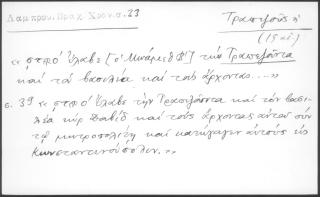 Λαμπρου. Βραχ. Χρον. σ. 23
Τραπεζοῦς
(15 αἰ.)
« ςτπθ' ἔλαβε [ὁ Μωάμεθ Β'] τὴν Τραπεζοῦντα
καὶ τὸν βασιλέα καὶ τοὺς ἄρχοντας...»
σ. 39 « ςτπθ' ἔλαβε τὴν Τραπεζοῦντα καὶ τὸν βασι-
λέα κὺρ Δαβὶδ καὶ τοὺς ἄρχοντας αὐτοῦ σὺν
τῷ μητροπολίτῃ καὶ κατήγαγεν αὐτοὺς εἰς
Κωνσταντινούπολιν.»